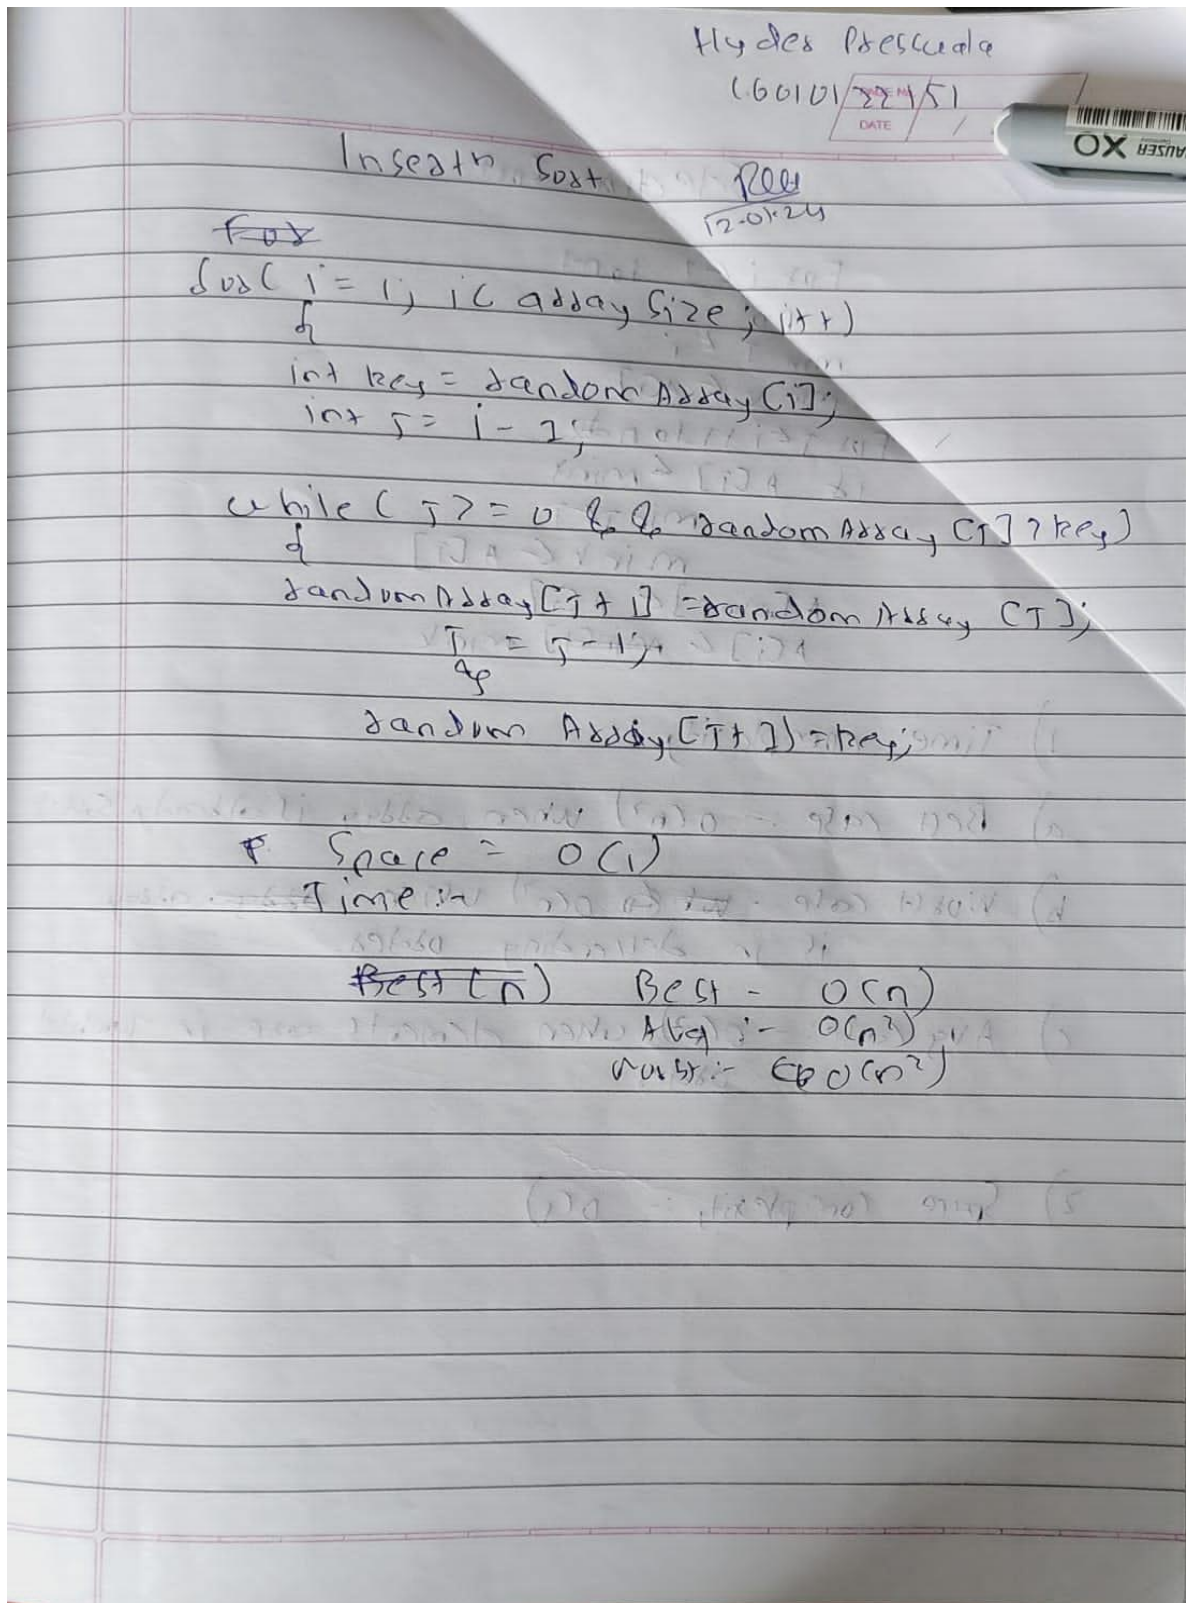 Hyder Presswala
60010122151
PAGE No.
DATE
XO
Insertn Sort
12.01.24
For
for( i = 1; i< array Size; i++)
{
int key = random Array [i];
int J = i - 1;
while ( J >= 0 && random Array [J] > key)
{
random Array [J + 1] = random Array [J];
J = J - 1;
}
random Array [J + 1] = key;
Space = O(1)
Time :-
Best (n) Best - O(n)
Avg :- O(n²)
Worst :- O(n²)